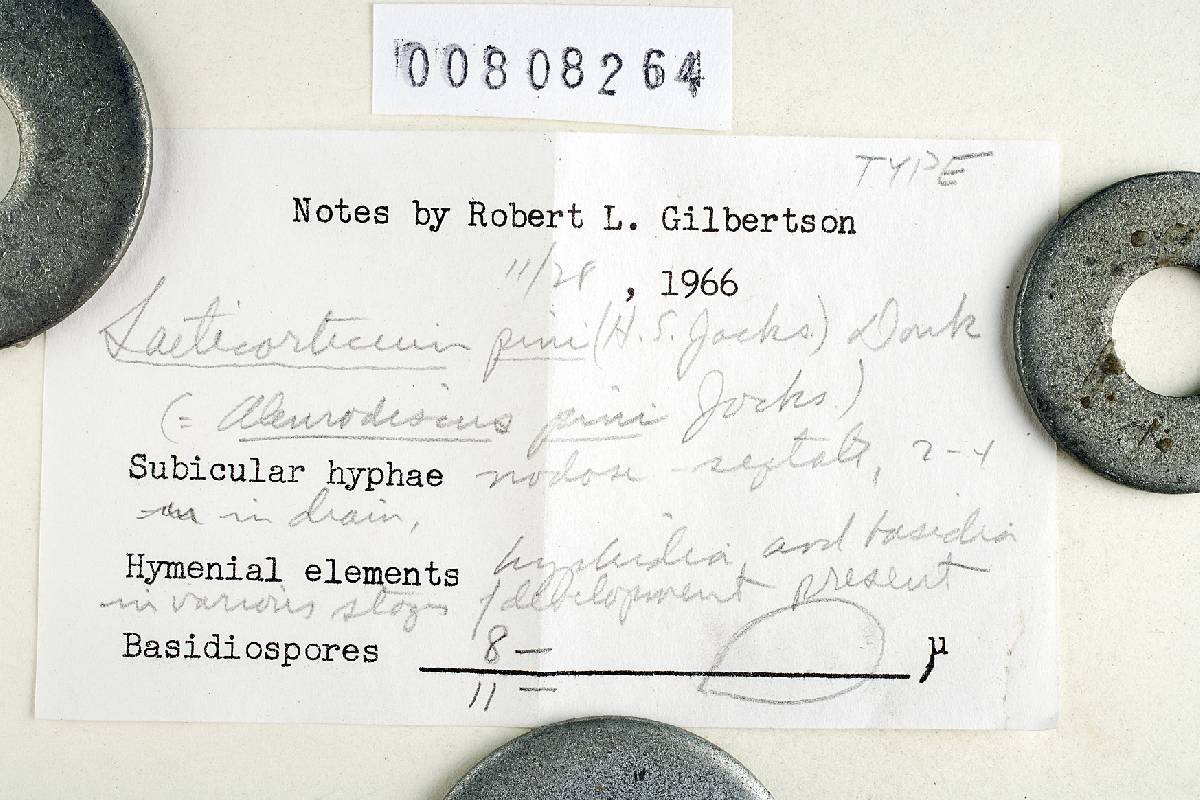 00808264
TYPE
Notes by Robert L. Gilbertson
11/28, 1966
Laeticorticium pini (H. S. Jacks.) Donk
(= Aleurodiscus pini Jacks.)
Subicular hyphae nodose-septate, 2-4
in diam,
Hymenial elements hyphidia, and basidia
in various stages / development present
Basidiospores 8 — µ
11 —